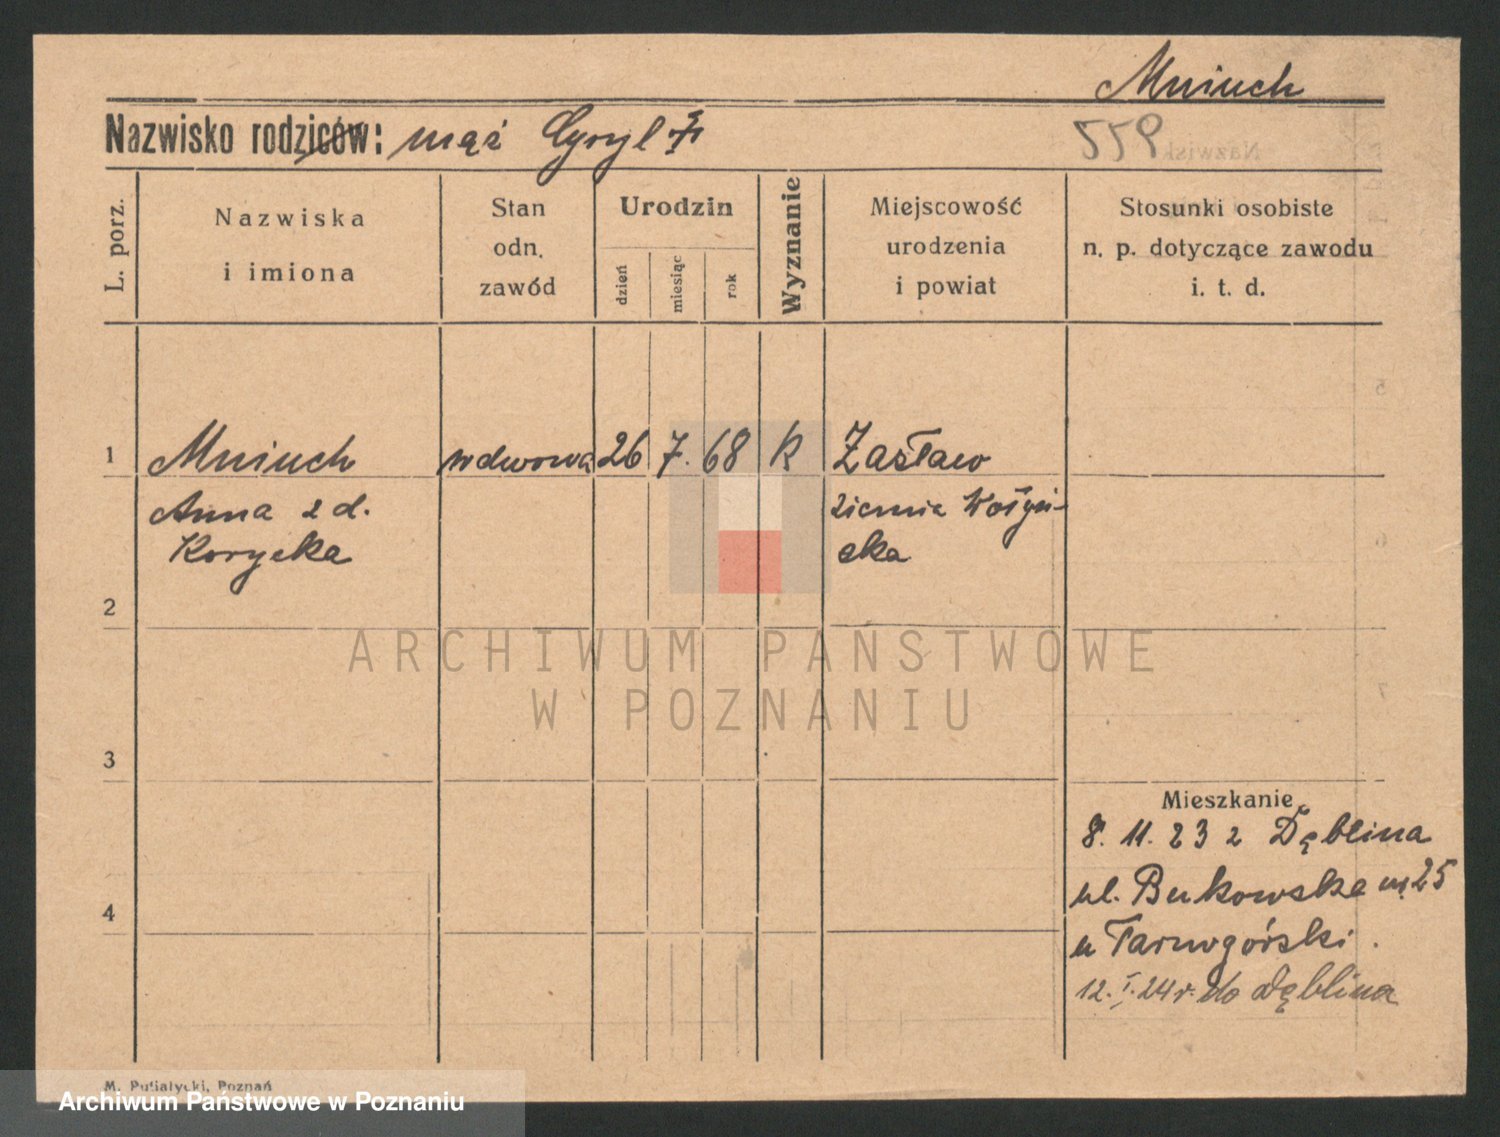 Mniuch
Nazwisko rodziców: mąż Cyryl
L. porz.
Nazwiska
i imiona
Stan
odn.
zawód
Urodzin
dzień
miesiąc
rok
Wyznanie
Miejscowość
urodzenia
i powiat
Stosunki osobiste
n. p. dotyczące zawodu
i. t. d.
1 Mniuch wdowa 26 7. 68 K Zasław
Anna z d. ziemia Wołyń-
Korycka ska
2
3
4
Mieszkanie
8. 11. 23 z Dęblina
ul. Bukowska 25
u Tarnogórski.
12. I. 24 r. do Dęblina
ARCHIWUM PAŃSTWOWE
W POZNANIU
M. Putiatycki, Poznań
Archiwum Państwowe w Poznaniu